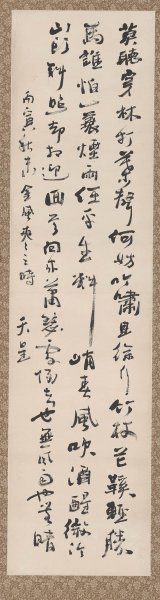 莫聽穿林打葉聲何妨吟嘯且徐行竹杖芒鞵輕勝
馬誰怕一蓑煙雨任平生料峭春風吹酒醒微冷
山頭斜照却相迎回首向來蕭瑟處歸去也無風雨也無晴
丙寅秋 金風爽之時 天